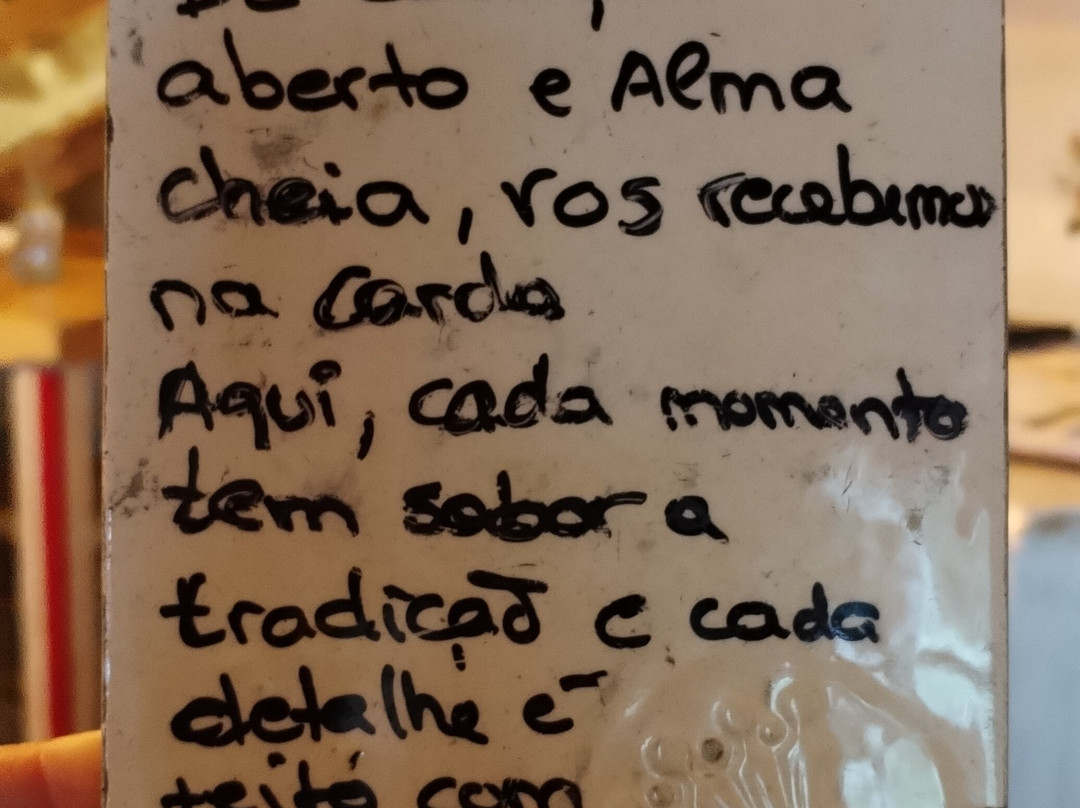 De
aberto e Alma
cheia, vos recebemos
na Carda
Aqui, cada momento
tem sabor a
tradição e cada
detalhe é
feito com